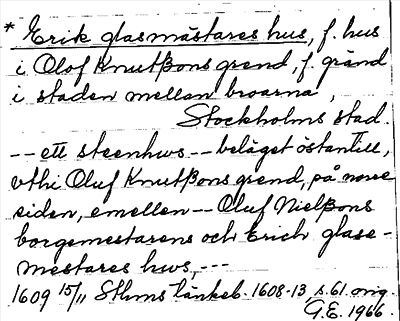 * Erik glasmästares hus, f. hus
i Olof Knutßons grend, f. gränd
i staden mellan broarna,
Stockholms stad.
-- ett steenhws -- beläget östantill,
vthi Oluf Knutßons grend, på norre
siden, emellen -- Oluf Nielßons
borgemestarens och Erich glase-
mestares hws, ---
1609 15/11 Sthms tänkeb. 1608-13 s. 61 orig.
G.E. 1966.